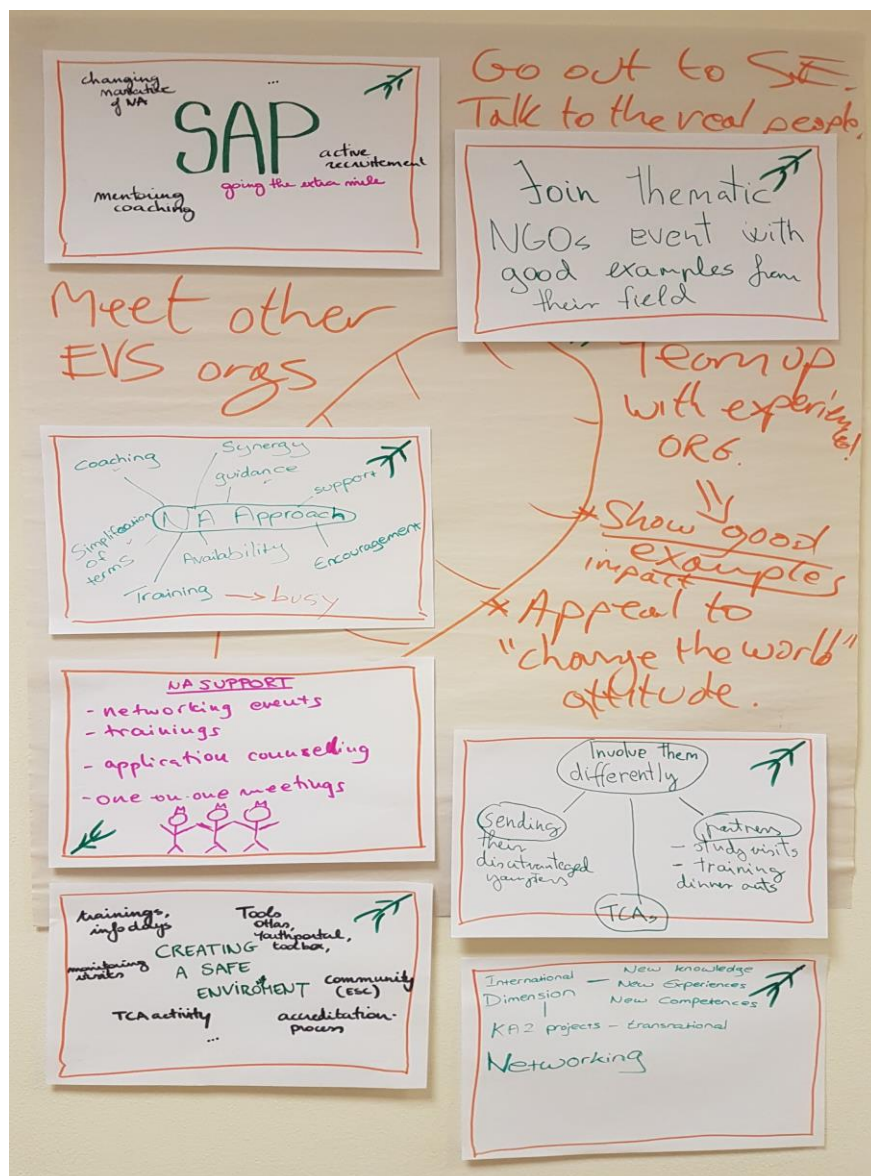 changing
narrative
of NA
...
SAP
active
recruitement
going the extra mile
mentoring
coaching
Go out to
Talk to the real people.
Join thematic
NGOs event with
good examples from
their field
Meet other
EVS orgs
Team up
with
ORG.
Show good
examples
impact
Appeal to
"change the world"
attitude.
Coaching
Synergy
guidance
support
NA Approach
Simplification
of
terms
Availability
Encouragement
Training → busy
NA SUPPORT
- networking events
- trainings
- application counselling
- one on one meetings
Involve them
differently
Sending
their
disatvanteged
partners
- study visits
- training
dinner outs
TCAs
trainings,
info days
Tools
Otlas,
Youthportal,
toolbox,
CREATING
A SAFE
ENVIROMENT
monitoring
visits
community
(ESC)
TCA activity
accreditation-
process
...
International
Dimension
- New knowledge
- New Experiences
New Competences
KA2 projects - transnational
Networking